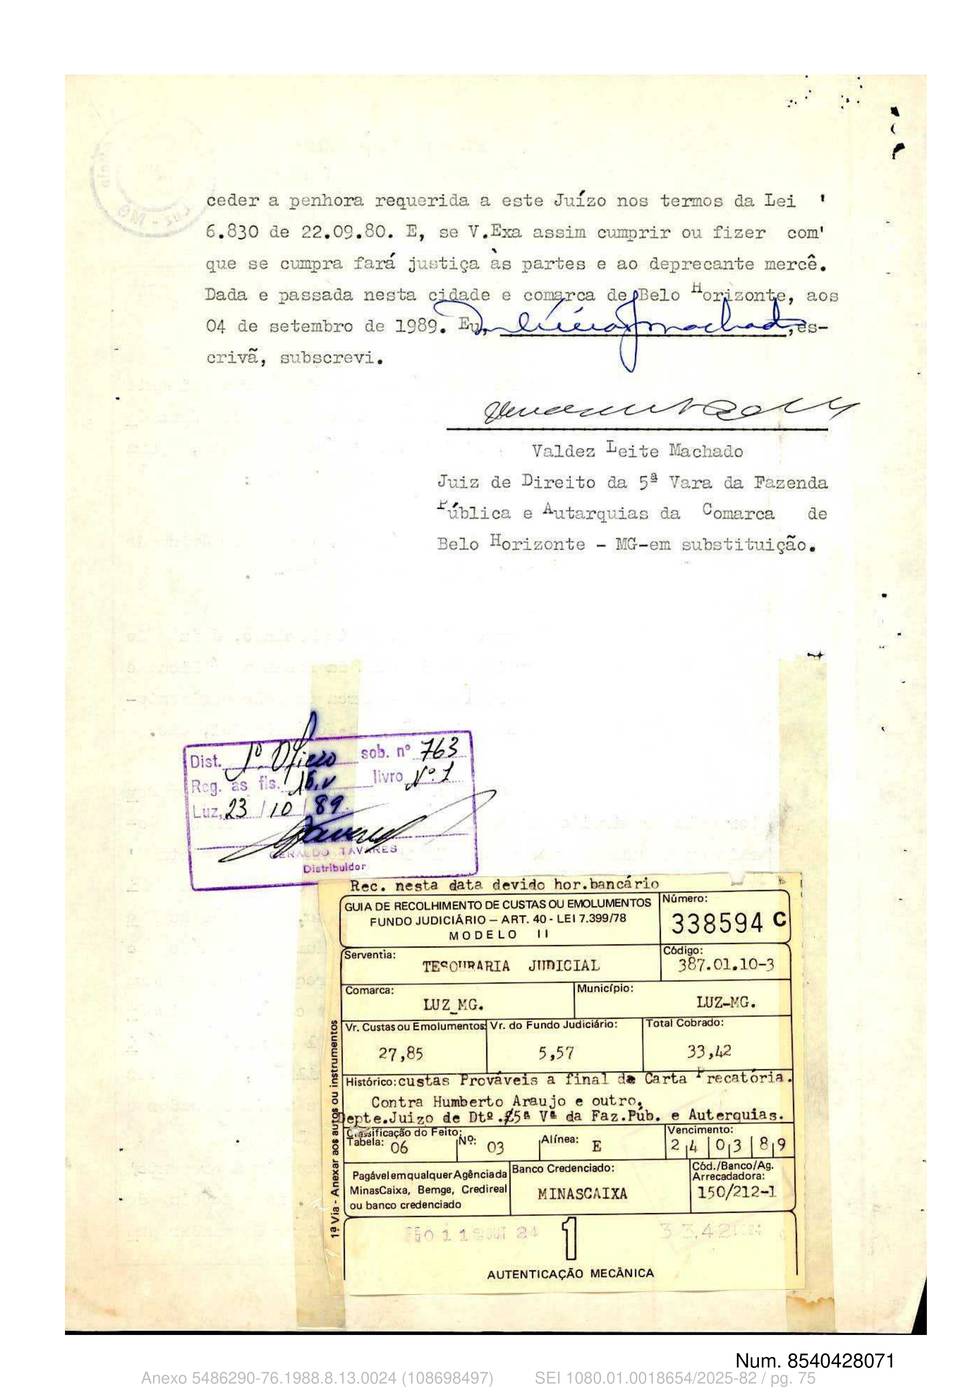 ceder a penhora requerida a este Juízo nos termos da Lei '
6.830 de 22.09.80. E, se V.Exa assim cumprir ou fizer com'
que se cumpra fará justiça às partes e ao deprecante mercê.
Dada e passada nesta cidade e comarca de Belo Horizonte, aos
04 de setembro de 1989. Eu, ,es-
crivã, subscrevi.
Valdez Leite Machado
Juiz de Direito da 5ª Vara da Fazenda
Pública e Autarquias da Comarca de
Belo Horizonte - MG-em substituição.
Dist. 1º Ofício sob. nº 763
Reg. às fls. 15,v livro Nº 1
Luz, 23 / 10 / 89.
GERALDO TAVARES
Distribuidor
Rec. nesta data devido hor.bancário
GUIA DE RECOLHIMENTO DE CUSTAS OU EMOLUMENTOS
FUNDO JUDICIÁRIO — ART. 40 - LEI 7.399/78
MODELO II
Número:
338594 C
Serventia:
TESOURARIA JUDICIAL
Código:
387.01.10-3
Comarca:
LUZ_MG.
Município:
LUZ-MG.
Vr. Custas ou Emolumentos:
27,85
Vr. do Fundo Judiciário:
5,57
Total Cobrado:
33,42
Histórico: custas Prováveis a final de Carta Precatória.
Contra Humberto Araujo e outro,
Depte.Juizo de Dtº. 5ª Vª da Faz.Púb. e Auterquias.
Classificação do Feito:
Tabela: 06
Nº: 03
Alínea: E
Vencimento:
24 03 89
Pagável em qualquer Agência da
MinasCaixa, Bemge, Credireal
ou banco credenciado
Banco Credenciado:
MINASCAIXA
Cód./Banco/Ag.
Arrecadadora:
150/212-1
1
AUTENTICAÇÃO MECÂNICA
1ª Via - Anexar aos autos ou instrumentos
Num. 8540428071
Anexo 5486290-76.1988.8.13.0024 (108698497) SEI 1080.01.0018654/2025-82 / pg. 75